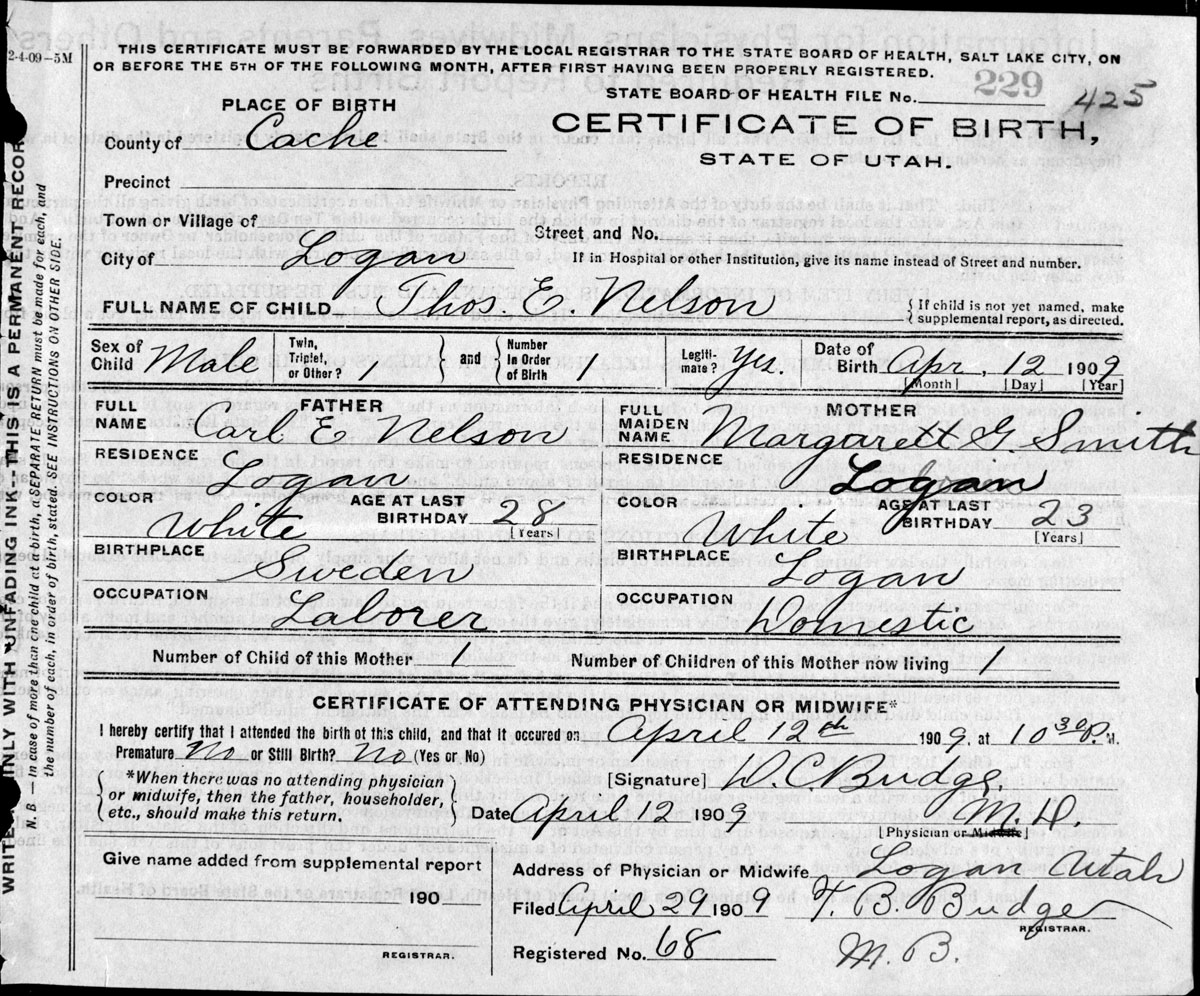 2-4-09-5M
THIS CERTIFICATE MUST BE FORWARDED BY THE LOCAL REGISTRAR TO THE STATE BOARD OF HEALTH, SALT LAKE CITY, ON
OR BEFORE THE 5TH OF THE FOLLOWING MONTH, AFTER FIRST HAVING BEEN PROPERLY REGISTERED.
STATE BOARD OF HEALTH FILE No. 229 425
PLACE OF BIRTH
CERTIFICATE OF BIRTH,
STATE OF UTAH.
County of Cache
Precinct
Town or Village of
Street and No.
City of Logan
If in Hospital or other Institution, give its name instead of Street and number.
FULL NAME OF CHILD Thos. E. Nelson
{If child is not yet named, make
supplemental report, as directed.
Sex of Child Male
Twin, Triplet, or Other? 1
} and {
Number in Order of Birth 1
Legiti-mate? Yz.
Date of Birth Apr. 12 1909
[Month] [Day] [Year]
FULL NAME FATHER Carl E Nelson
FULL MAIDEN NAME MOTHER Margarett G. Smith
RESIDENCE Logan
RESIDENCE Logan
COLOR White AGE AT LAST BIRTHDAY 28 [Years]
COLOR White AGE AT LAST BIRTHDAY 23 [Years]
BIRTHPLACE Sweden
BIRTHPLACE Logan
OCCUPATION Laborer
OCCUPATION Domestic
Number of Child of this Mother 1
Number of Children of this Mother now living 1
CERTIFICATE OF ATTENDING PHYSICIAN OR MIDWIFE*
I hereby certify that I attended the birth of this child, and that it occured on April 12th 1909, at 10 30 P. M.
Premature No or Still Birth? No (Yes or No)
*When there was no attending physician
or midwife, then the father, householder,
etc., should make this return.
[Signature] W. C. Budge,
M. D.
Date April 12 1909
[Physician or Midwife]
Give name added from supplemental report
190
REGISTRAR.
Address of Physician or Midwife Logan Utah
Filed April 29 1909 F. B. Budge
REGISTRAR.
Registered No. 68 M. B.
WRITE ONLY WITH UNFADING INK—THIS IS A PERMANENT RECOR
N. B.—In case of more than one child at a birth, a SEPARATE RETURN must be made for each, and
the number of each, in order of birth, stated. SEE INSTRUCTIONS ON OTHER SIDE.